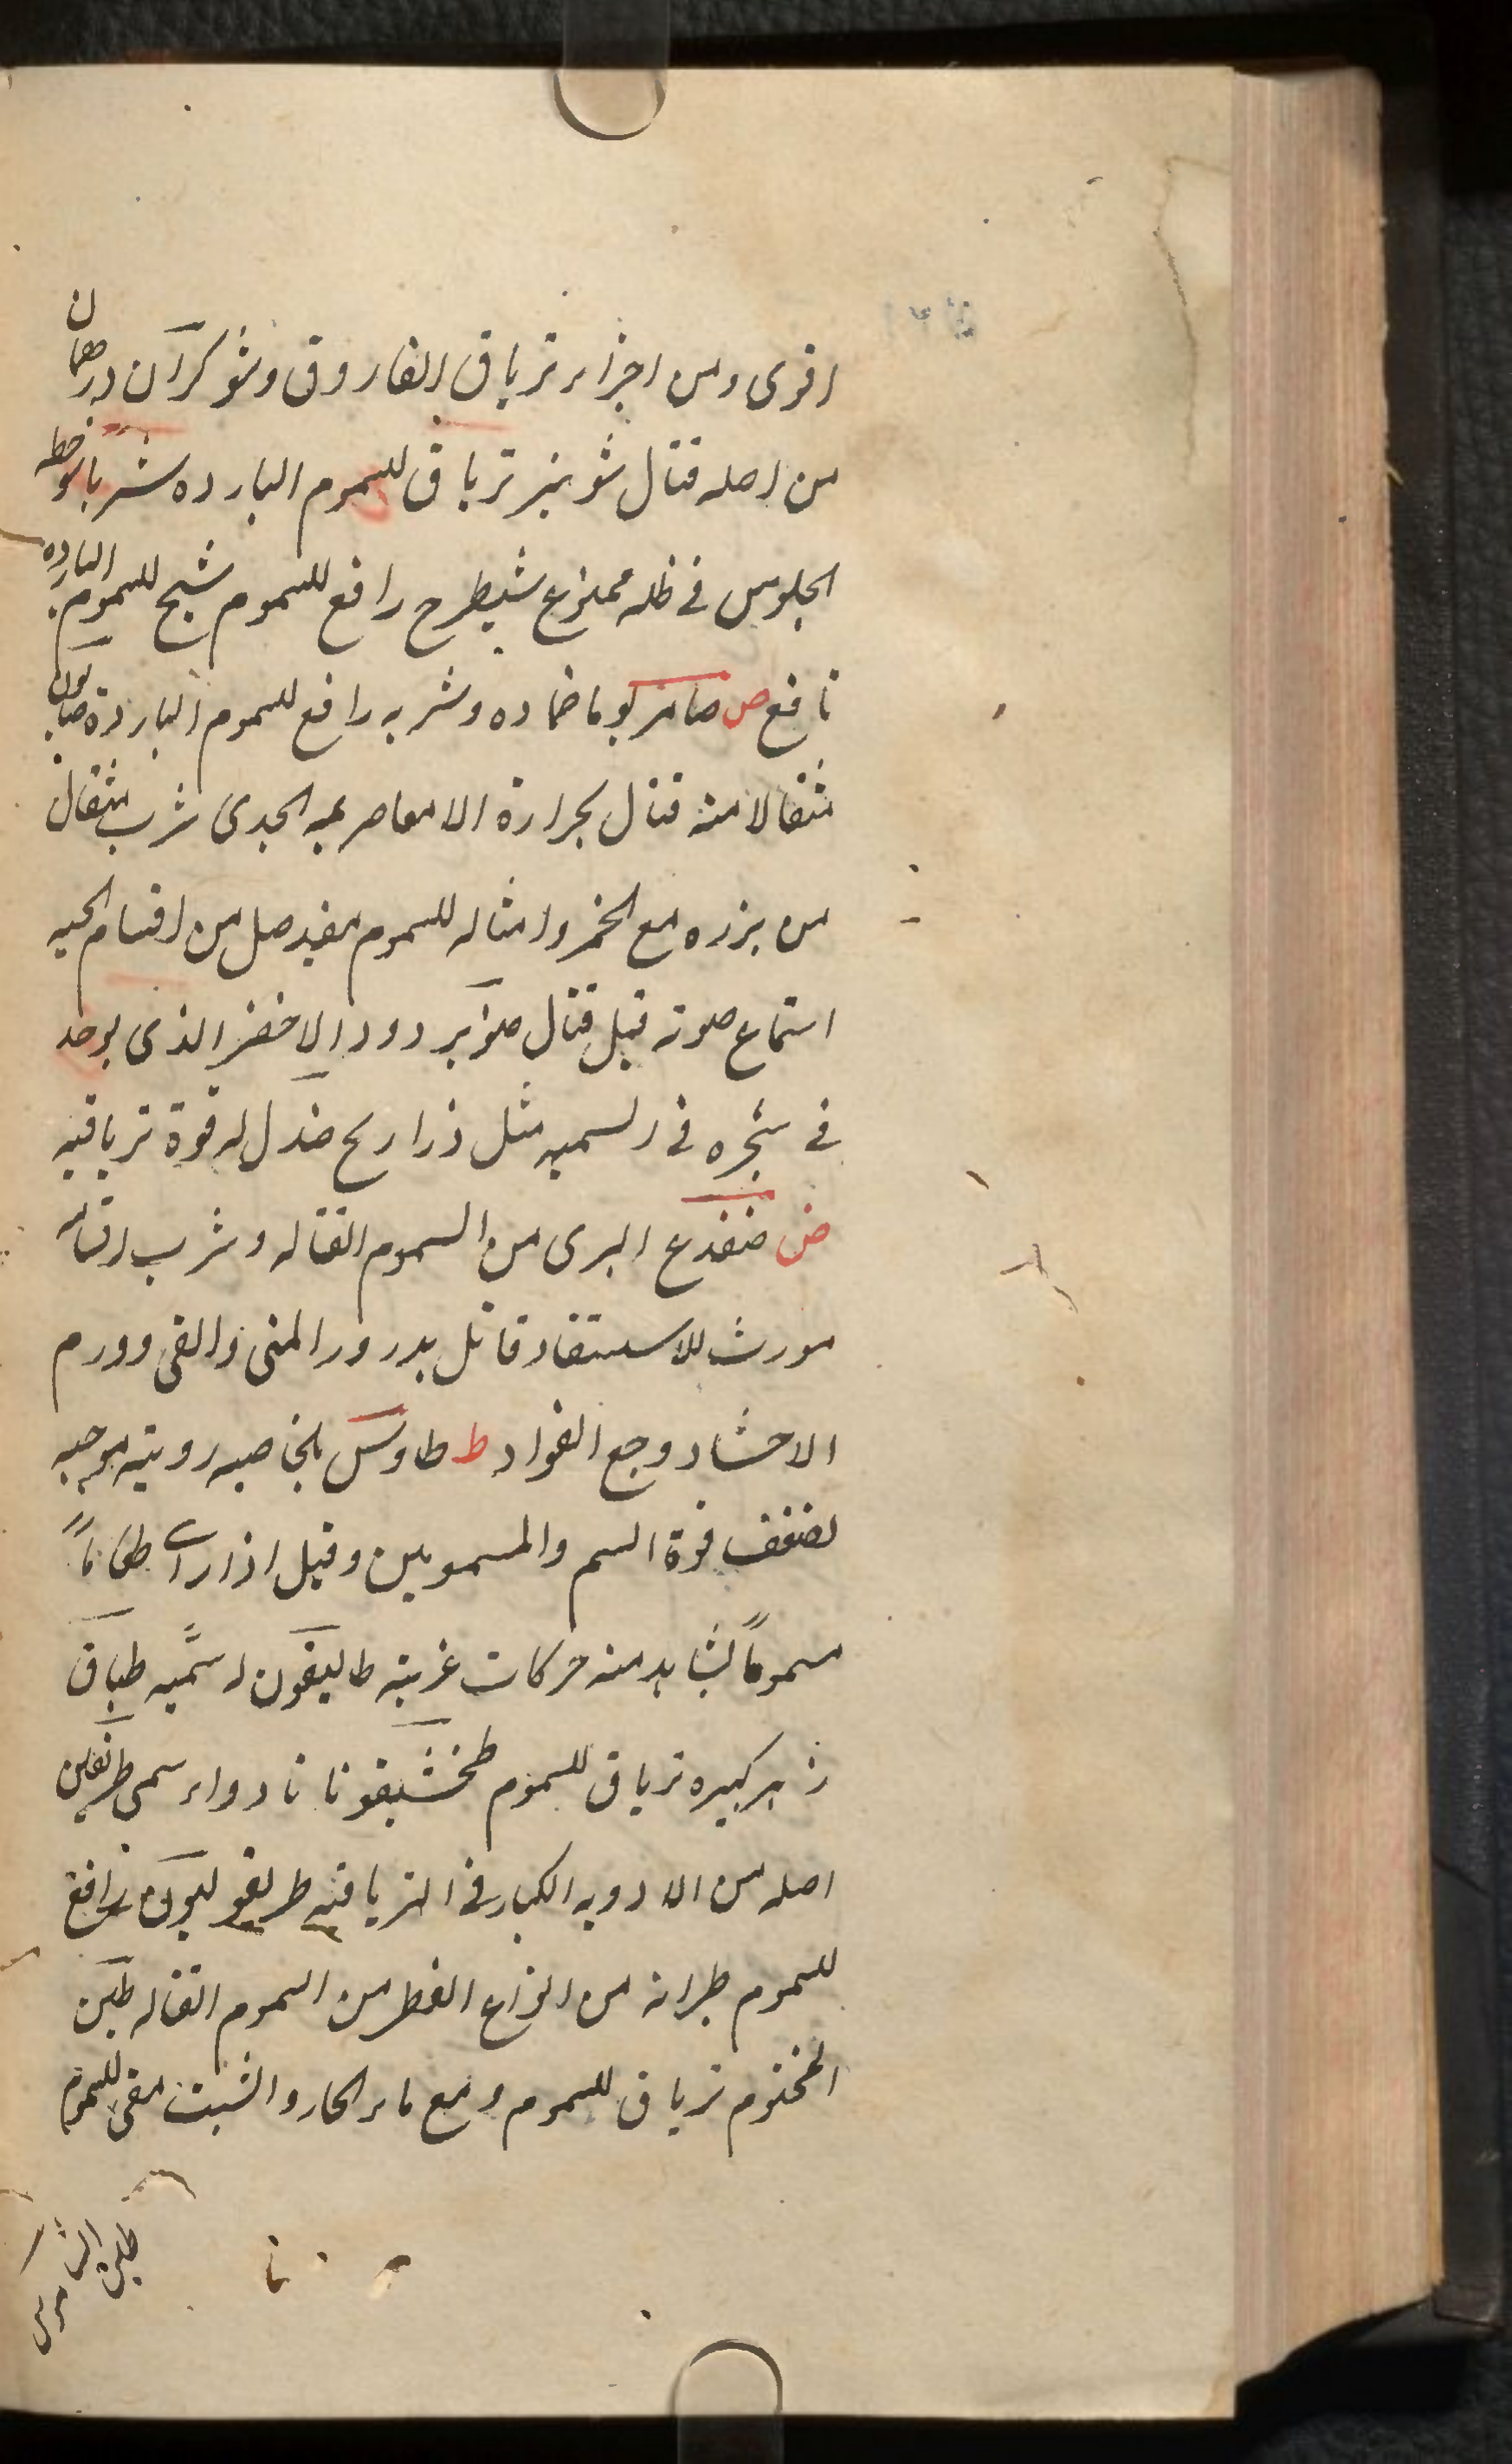 اقوى ومن اجزاء ترياق الفاروق وشوكران درهمان
من اصله قتال شونيز ترياق للسموم البارده شربا شوخطه
الجلوس فى ظله ممنوع شيطرج رافع للسموم شيح للسموم البارده
نافع ص صامر يوما ضماده وشربه رافع للسموم الباردة صابون
مثقالا منه قتال بحرارة الامعا صريمه الجدى شرب مثقال
من بزره مع الخمر وامثاله للسموم مفيد صل من اقسام الحيه
استماع صوته قيل قتال صنوبر دود الاخضر الذى يوجد
فى شجره فى السميه مثل ذراريح صندل له قوة ترياقيه
ض ضفدع البرى من السموم القتاله وشرب اقسامه
مورث للاستسقاء قاتل بدرور المنى والقى وورم
الاحشاء وجع الفواد ط طاوس بلخاصيه رويته موجبه
لضعف قوة السم والمسمومين وقيل اذا راى طعاماً
مسموماً يشاهد منه حركات غريبته طاليقون له سميه طباق
زهر كبيره ترياق للسموم طخشيقونا نا دواء سمى طريفلن
اصله من الادويه الكبار فى الترياقيه طريقوليون رافع
للسموم طراثه من انواع الفطر من السموم القتاله طين
المختوم ترياق للسموم ومع ماء الحار والشبت مقى للسموم
طين الشاموس